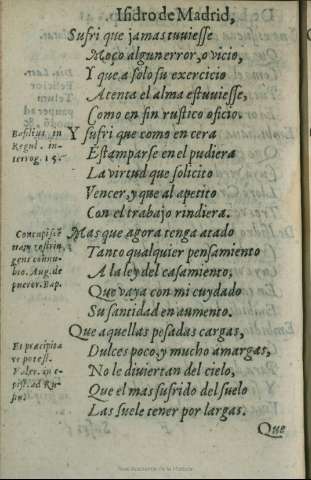 Isidro de Madrid,
Sufri que jamas tuuiesse
Moço algun error, o vicio,
Y que a solo su exercicio
Atenta el alma estuuiesse,
Como en fin rustico oficio.
Basilius in
Regul. in-
terrog. 15.
Y sufri que como en cera
Estamparse en el pudiera
La virtud que solicito
Vencer, y que al apetito
Con el trabajo rindiera.
Concupiscē
tiam restrin
gens connu-
bio. Aug. de
pueror. Bap.
Mas que agora tenga atado
Tanto qualquier pensamiento
A la ley del casamiento,
Que vaya con mi cuydado
Su santidad en aumento.
Que aquellas pesadas cargas,
Et præcipita
re potest.
in e-
pist. ad Ru-
Dulces poco, y mucho amargas,
No le diuiertan del cielo,
Que el mas sufrido del suelo
Las suele tener por largas.
Que
Real Academia de la Historia